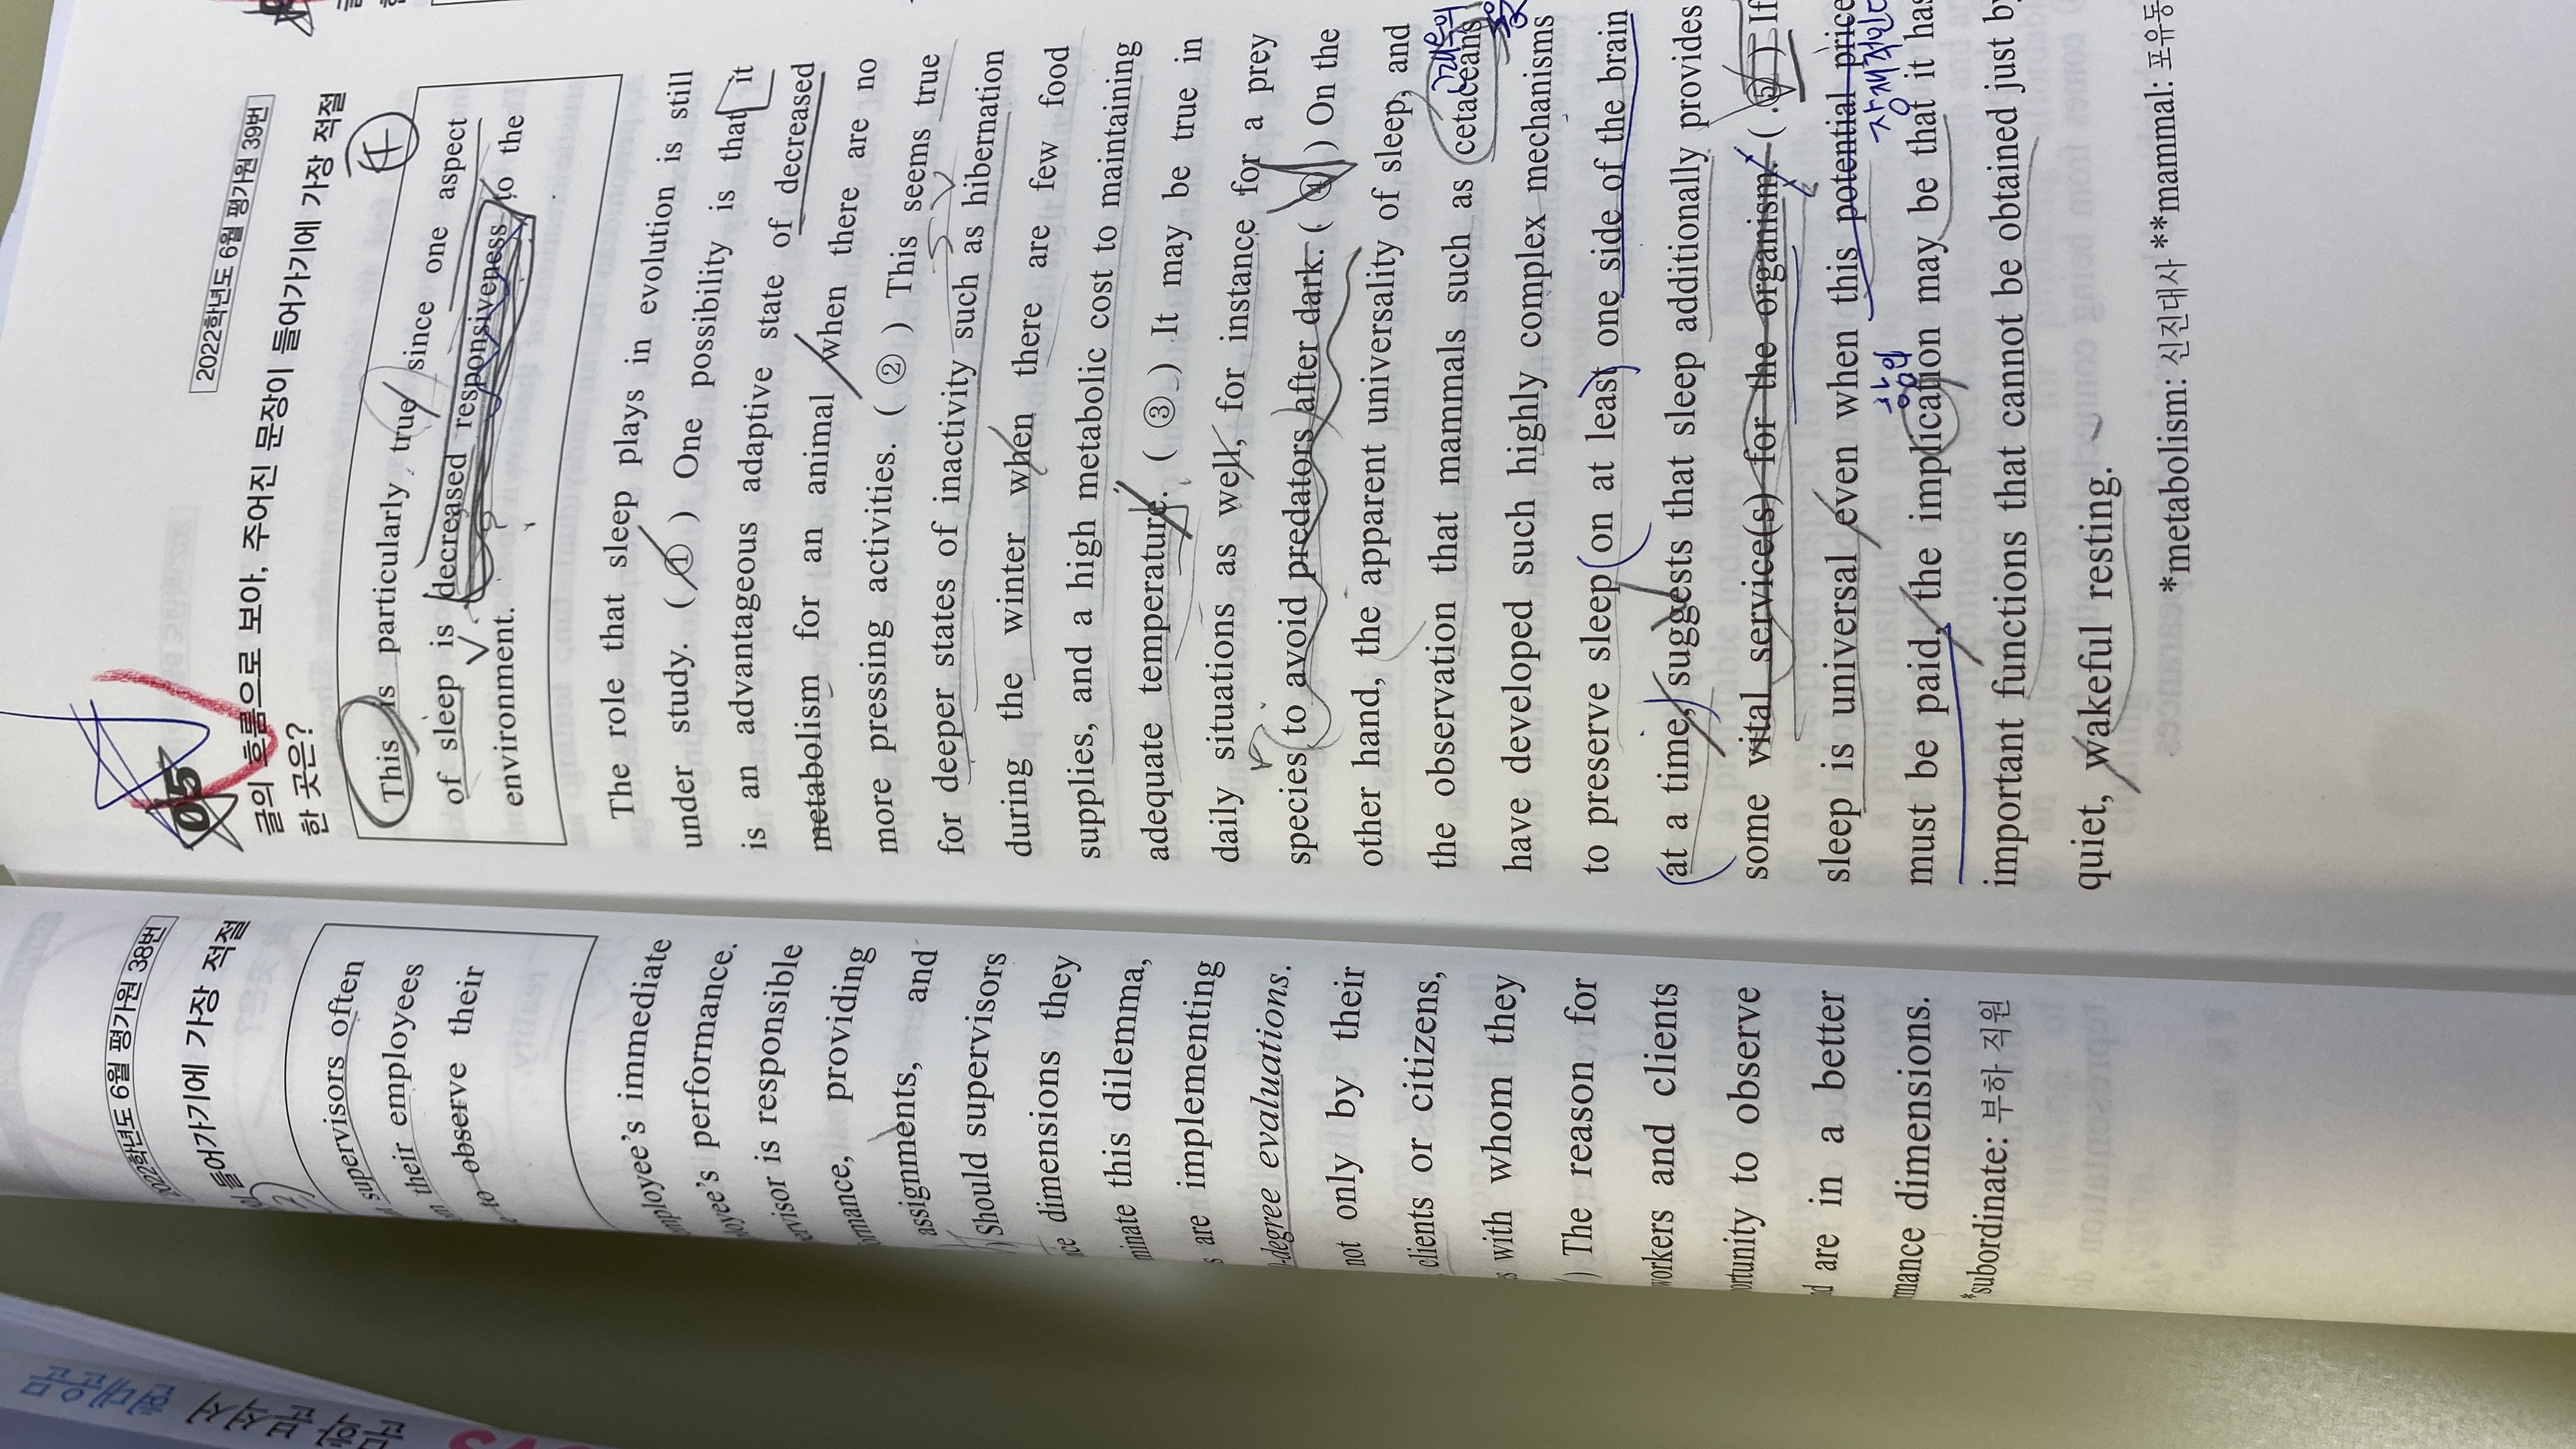 2022학년도 6월 평가원 38번
들어가기에 가장 적절
supervisors often
their employees
to observe their
employee's immediate
employee's performance.
supervisor is responsible
performance, providing
assignments, and
Should supervisors
dimensions they
this dilemma,
are implementing
degree evaluations.
not only by their
clients or citizens,
with whom they
) The reason for
workers and clients
opportunity to observe
are in a better
dimensions.
*subordinate: 부하 직원
05
2022학년도 6월 평가원 39번
글의 흐름으로 보아, 주어진 문장이 들어가기에 가장 적절
한 곳은?
This is particularly true since one aspect
of sleep is decreased responsiveness to the
environment.
The role that sleep plays in evolution is still
under study. ( ① ) One possibility is that it
is an advantageous adaptive state of decreased
metabolism for an animal when there are no
more pressing activities. ( ② ) This seems true
for deeper states of inactivity such as hibernation
during the winter when there are few food
supplies, and a high metabolic cost to maintaining
adequate temperature. ( ③ ) It may be true in
daily situations as well, for instance for a prey
species to avoid predators after dark. ( ④ ) On the
other hand, the apparent universality of sleep, and
고래목의
the observation that mammals such as cetaceans
have developed such highly complex mechanisms
to preserve sleep on at least one side of the brain
at a time, suggests that sleep additionally provides
some vital service(s) for the organism. ( ⑤ ) If
sleep is universal even when this potential price
잠재적인
함의
must be paid, the implication may be that it has
important functions that cannot be obtained just by
quiet, wakeful resting.
*metabolism: 신진대사 **mammal: 포유동